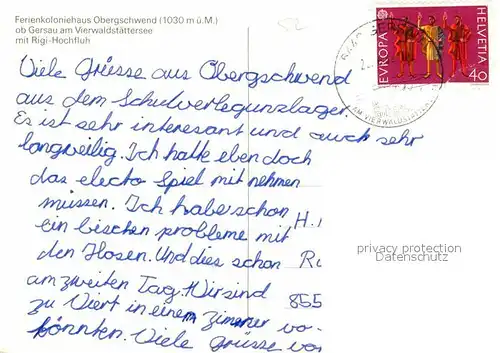 Ferienkoloniehaus Obergschwend (1030 m ü.M.)
ob Gersau am Vierwaldstättersee
mit Rigi-Hochfluh
EUROPA
HELVETIA
40
AM VIERWALDSTÄTTERSEE
Viele Grüsse aus Obergschwend
aus dem Schulverlegunzlager.
Es ist sehr interesant und auch sehr
langweilig. Ich hatte eben doch
das electo Spiel mit nehmen
müssen. Ich habe schon
ein bischen probleme mit
den Hosen. Und dies schon
am zweiten Tag. Wir sind
zu Viert in einem Zimmer
könnten. Viele Grüsse
H.
855
privacy protection
Datenschutz